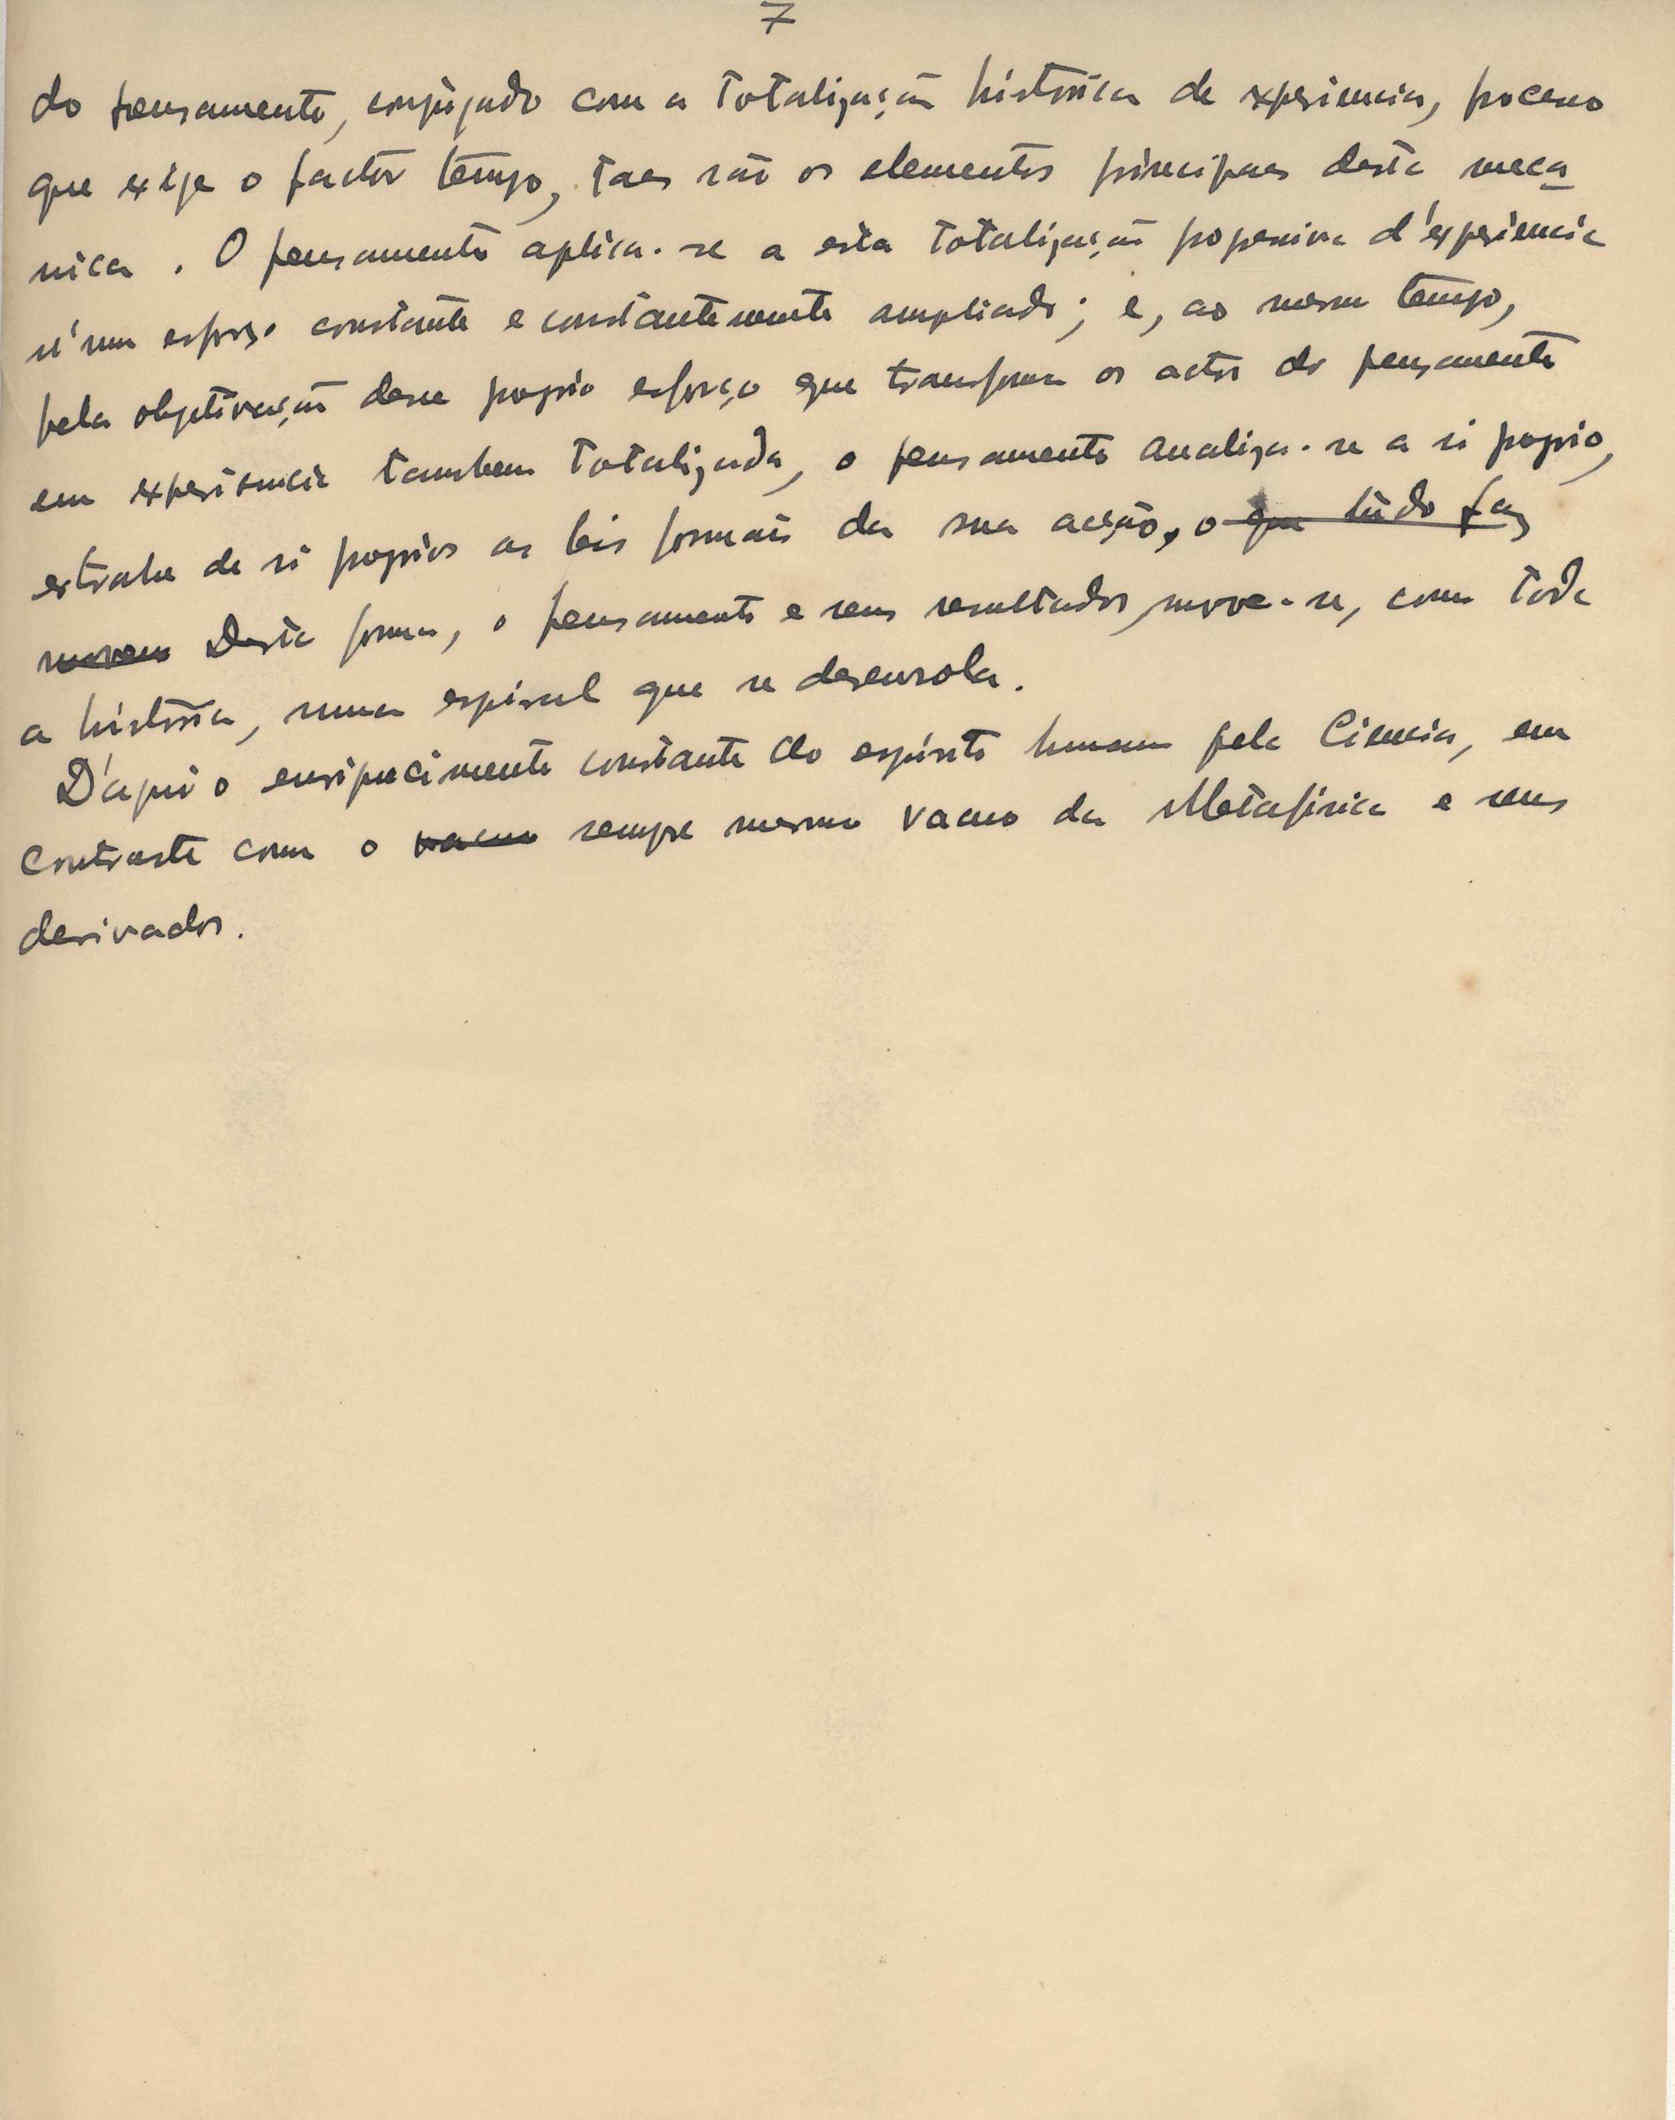 7
do pensamento, conjugado com a totalização historica de experiencia, processo
que exige o factor tempo, taes são os elementos principaes desta meca
nica. O pensamento aplica-se a esta totalização progressiva d'experiencia
n'um esforço constante e constantemente ampliado; e, ao mesmo tempo,
pela objetivação desse proprio esforço que transforma os actos do pensamento
em experiencia tambem totalizada, o pensamento analiza-se a si proprio,
extrahe de si proprios as leis formais da sua acção, o que tudo faz
movem Desta forma, o pensamento e seus resultados, move-se, com toda
a historia, numa espiral que se desenrola.
D'aqui o enriquecimento constante do espirito humano pela Ciencia, em
contraste com o vacuo sempre mesmo vacuo da Metafisica e seus
derivados.